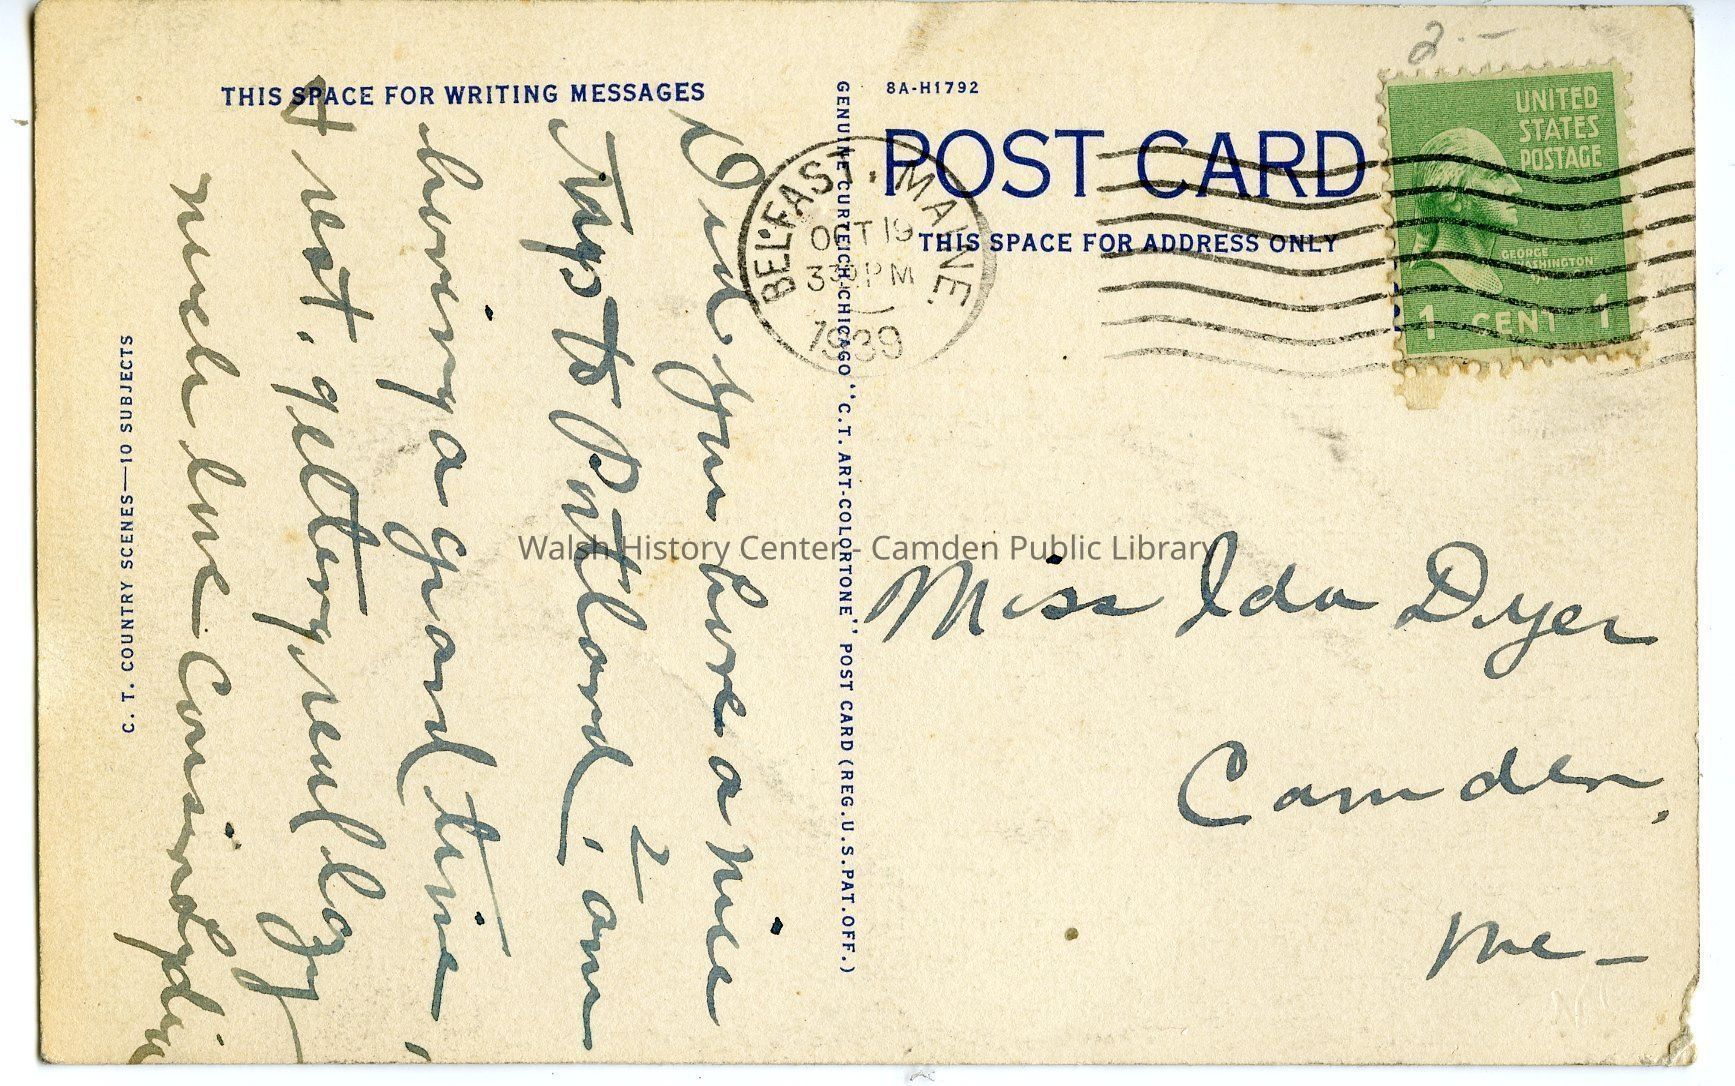 2.-
THIS SPACE FOR WRITING MESSAGES
Did you have a nice
trip to Portland, I am
having a grand time,
& rest, getting real lazy
much love
C. T. COUNTRY SCENES—10 SUBJECTS
GENUINE CURTEICH-CHICAGO "C.T. ART-COLORTONE" POST CARD (REG. U.S. PAT. OFF.)
8A-H1792
POST CARD
THIS SPACE FOR ADDRESS ONLY
BELFAST, MAINE.
OCT 19
PM
1939
UNITED
STATES
POSTAGE
GEORGE
WASHINGTON
1 CENT 1
Walsh History Center - Camden Public Library
Miss Ida Dyer
Camden,
Me—